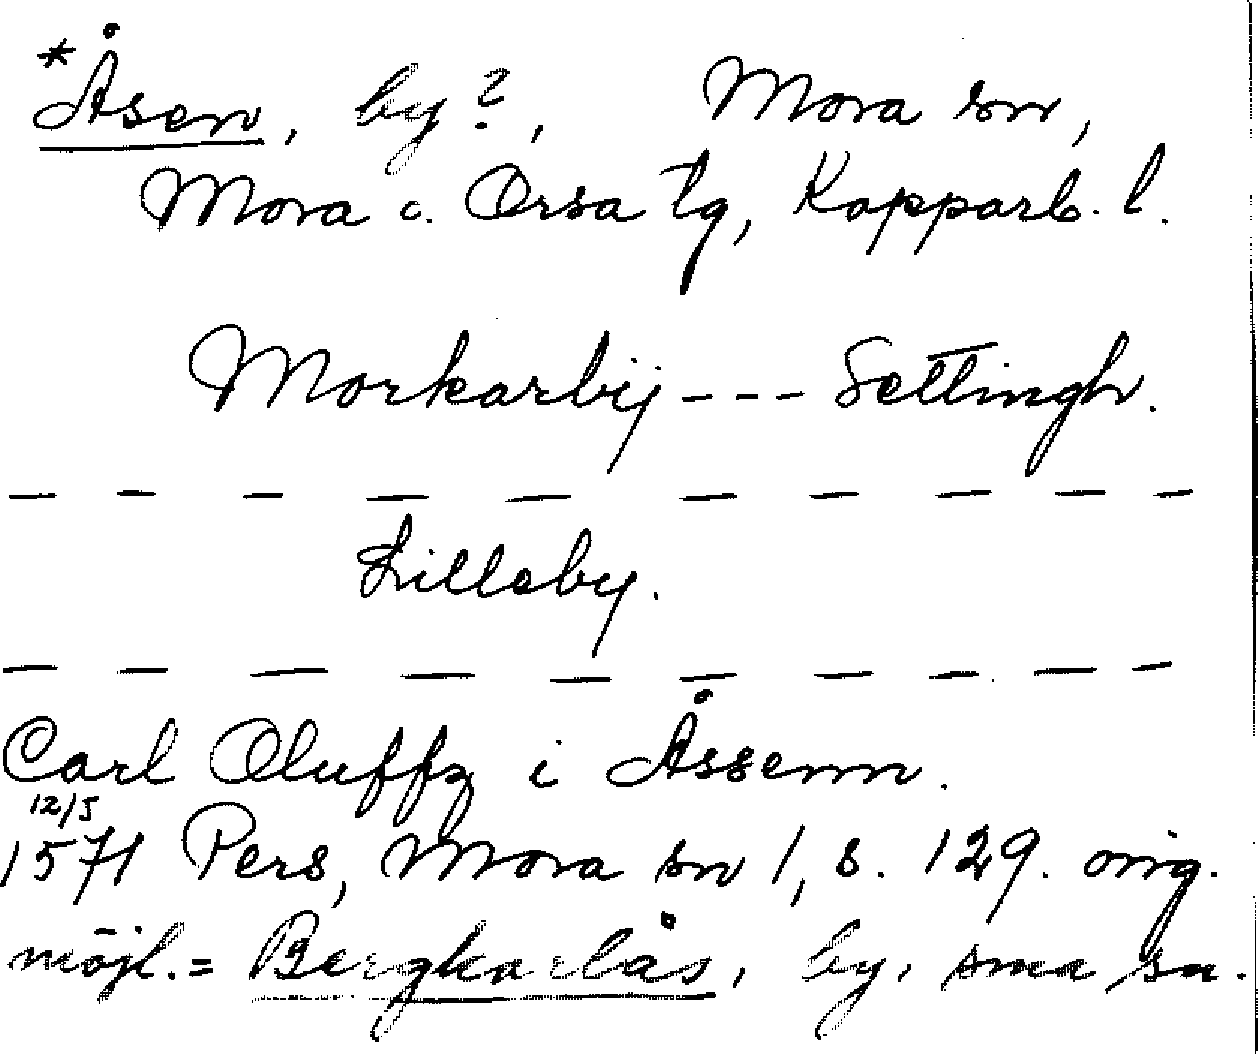 *Åsen, by?, Mora sn,
Mora o. Orsa tg, Kopparb. l.
Morkarbÿ --- Settingh.
— — — — — — — — — —
Lilleby.
— — — — — — — — — —
Carl Oluffz i Åssenn.
12/5
1571 Pers, Mora sn 1, s. 129. orig.
möjl. = Bergkarlås, by, sma sn.